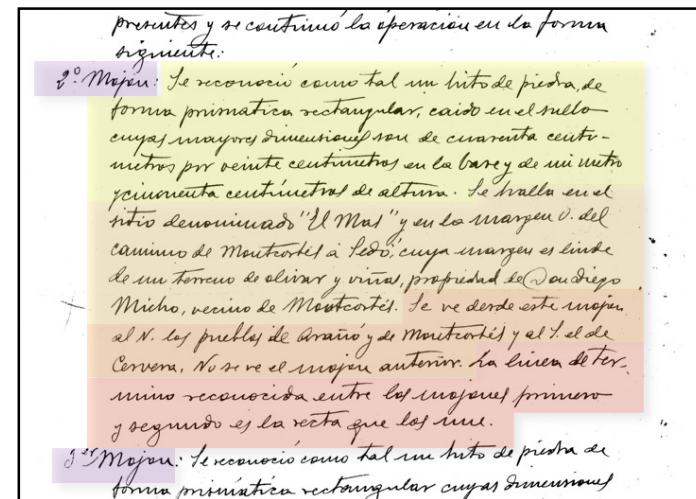 presentes y se continuó la operación en la forma
siguiente:
2º Mojon: Se reconoció como tal un hito de piedra, de
forma prismatica rectangular, caido en el suelo
cuyas mayores dimensiones son de cuarenta centi-
metros por veinte centimetros en la base y de un metro
y cincuenta centímetros de altura. Se halla en el
sitio denominado "El Mas" y en la margen O. del
camino de Montcortés á Sedó, cuya margen es linde
de un terreno de olivar y viñas, propiedad de Don Diego
Micho, vecino de Montcortés. Se ve desde este mojon
al N. los pueblos de Arañó y de Montcortés y al S. el de
Cervera. No se ve el mojon anterior. La linea de tér-
mino reconocida entre los mojones primero
y segundo es la recta que los une.
3er Mojon: Se reconoció como tal un hito de piedra de
forma prismática rectangular cuyas dimensiones